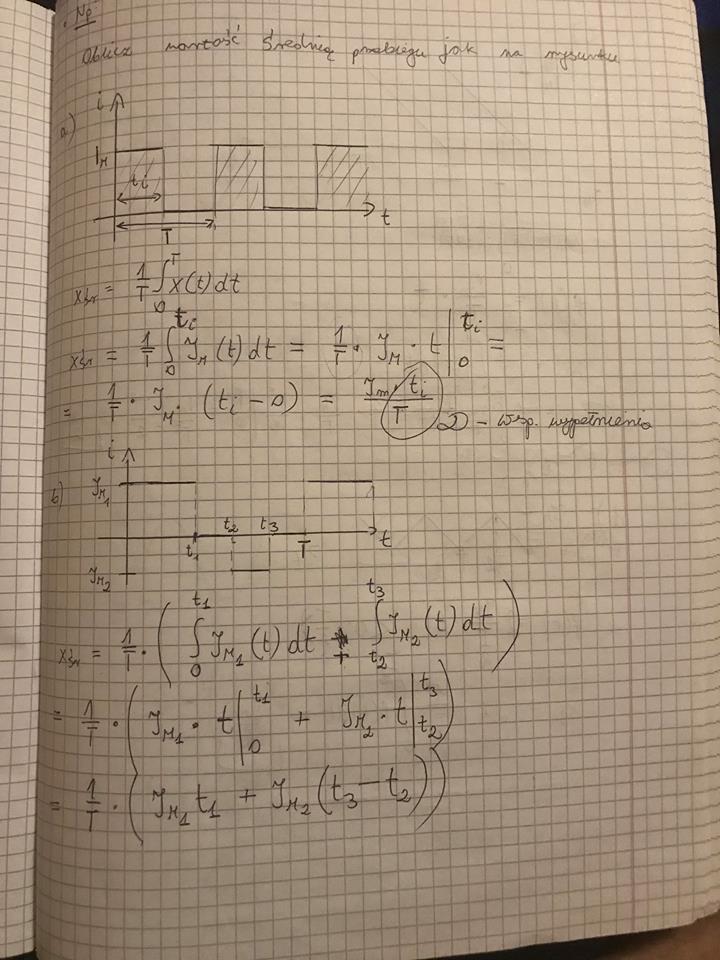 Np.
Oblicz wartość średnią przebiegu jak na rysunku
a)
i
I_M
t_i
T
t
x_śr = 1/T ∫_0^T x(t) dt
x_śr = 1/T ∫_0^{t_i} I_M (t) dt = 1/T · I_M · t |_0^{t_i} =
= 1/T · I_M · (t_i − 0) = I_m · t_i / T
D – wsp. wypełnienia
b)
i
I_M1
t_1
t_2
t_3
T
t
I_M2
x_śr = 1/T · ( ∫_0^{t_1} I_M1 (t) dt + ∫_{t_2}^{t_3} I_M2 (t) dt )
= 1/T · ( I_M1 · t |_0^{t_1} + I_M2 · t |_{t_2}^{t_3} )
= 1/T · ( I_M1 t_1 + I_M2 (t_3 − t_2) )